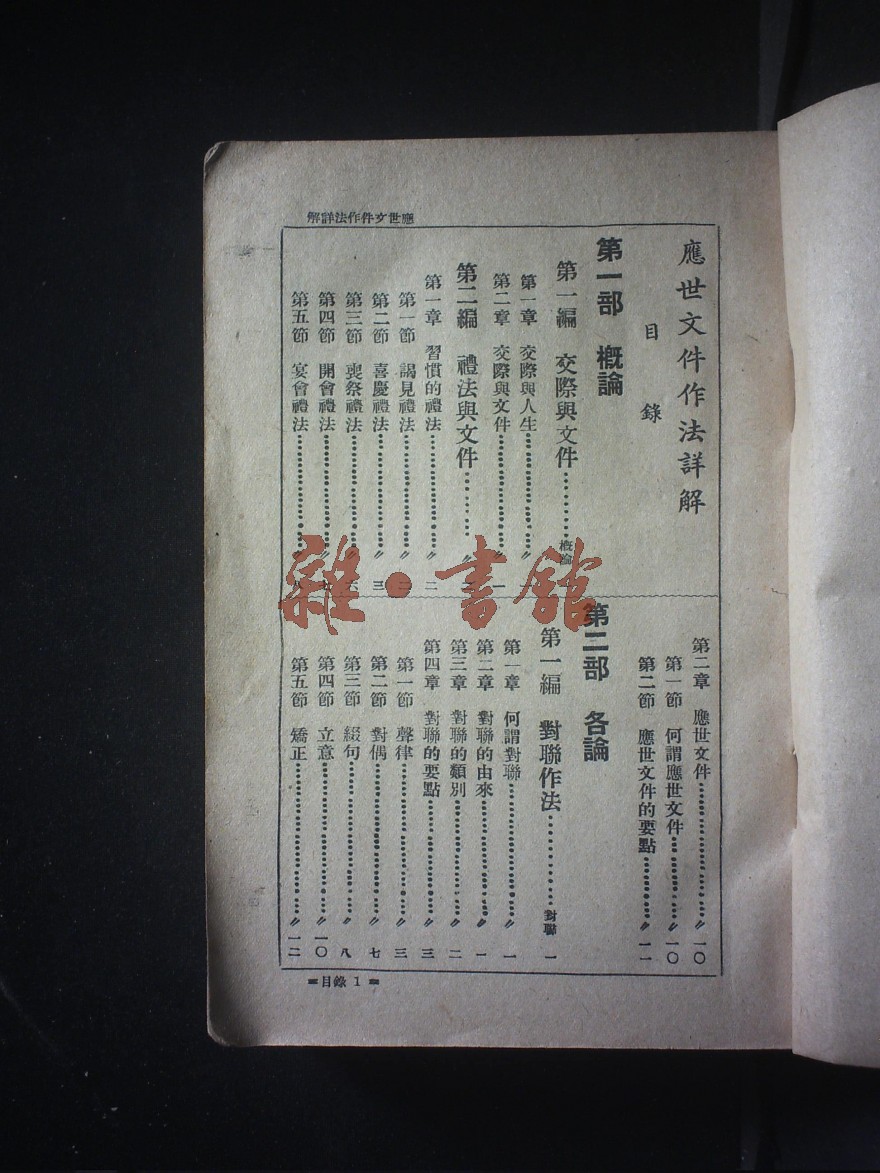 解詳法作件文世應
應世文件作法詳解
目錄
第一部 概論
第一編 交際與文件………概論
第一章 交際與人生………〃 一
第二章 交際與文件………〃 一
第二編 禮法與文件………〃
第一章 習慣的禮法………〃 二
第一節 謁見禮法………〃 二
第二節 喜慶禮法………〃 三
第三節 喪祭禮法………〃 六
第四節 開會禮法………〃 七
第五節 宴會禮法………〃 八
第二章 應世文件………〃 一〇
第一節 何謂應世文件………〃 一〇
第二節 應世文件的要點………〃 一一
第二部 各論
第一編 對聯作法………對聯 一
第一章 何謂對聯………〃 一
第二章 對聯的由來………〃 一
第三章 對聯的類別………〃 二
第四章 對聯的要點………〃 三
第一節 聲律………〃 三
第二節 對偶………〃 七
第三節 綴句………〃 八
第四節 立意………〃 一〇
第五節 矯正………〃 一二
=目錄 1 =
雜·書館